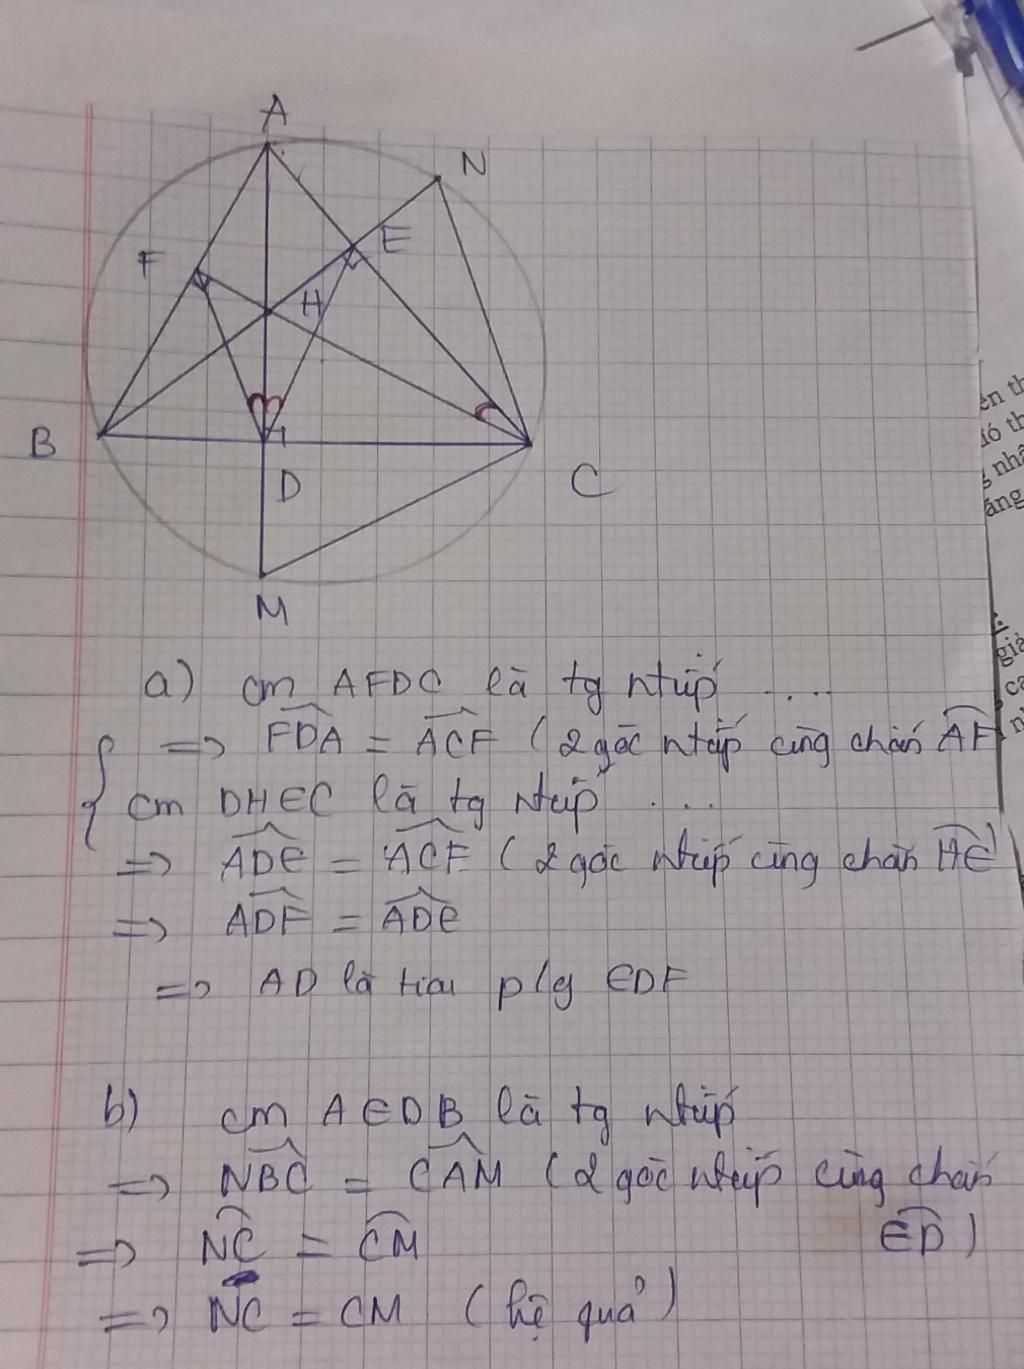 A
N
F
E
H
B
D
C
M
a) cm AFDC là tg ntiếp ....
=> FDA = ACF (2 góc ntiếp cùng chắn AF
cm DHEC là tg ntiếp ...
=> ADE = ACF (2 góc ntiếp cùng chắn HE)
=> ADF = ADE
=> AD là tia p/g EDF
b) cm AEDB là tg ntiếp
=> NBC = CAM (2 góc ntiếp cùng chắn
ED)
=> NC = CM
=> NC = CM (hệ quả)
ên th
đó th
g nhấ
ằng
giả